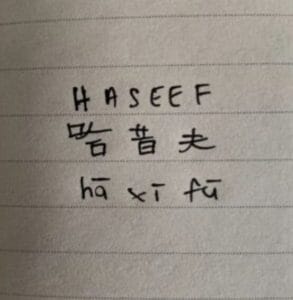 HASEEF
哈昔夫
hā xī fū